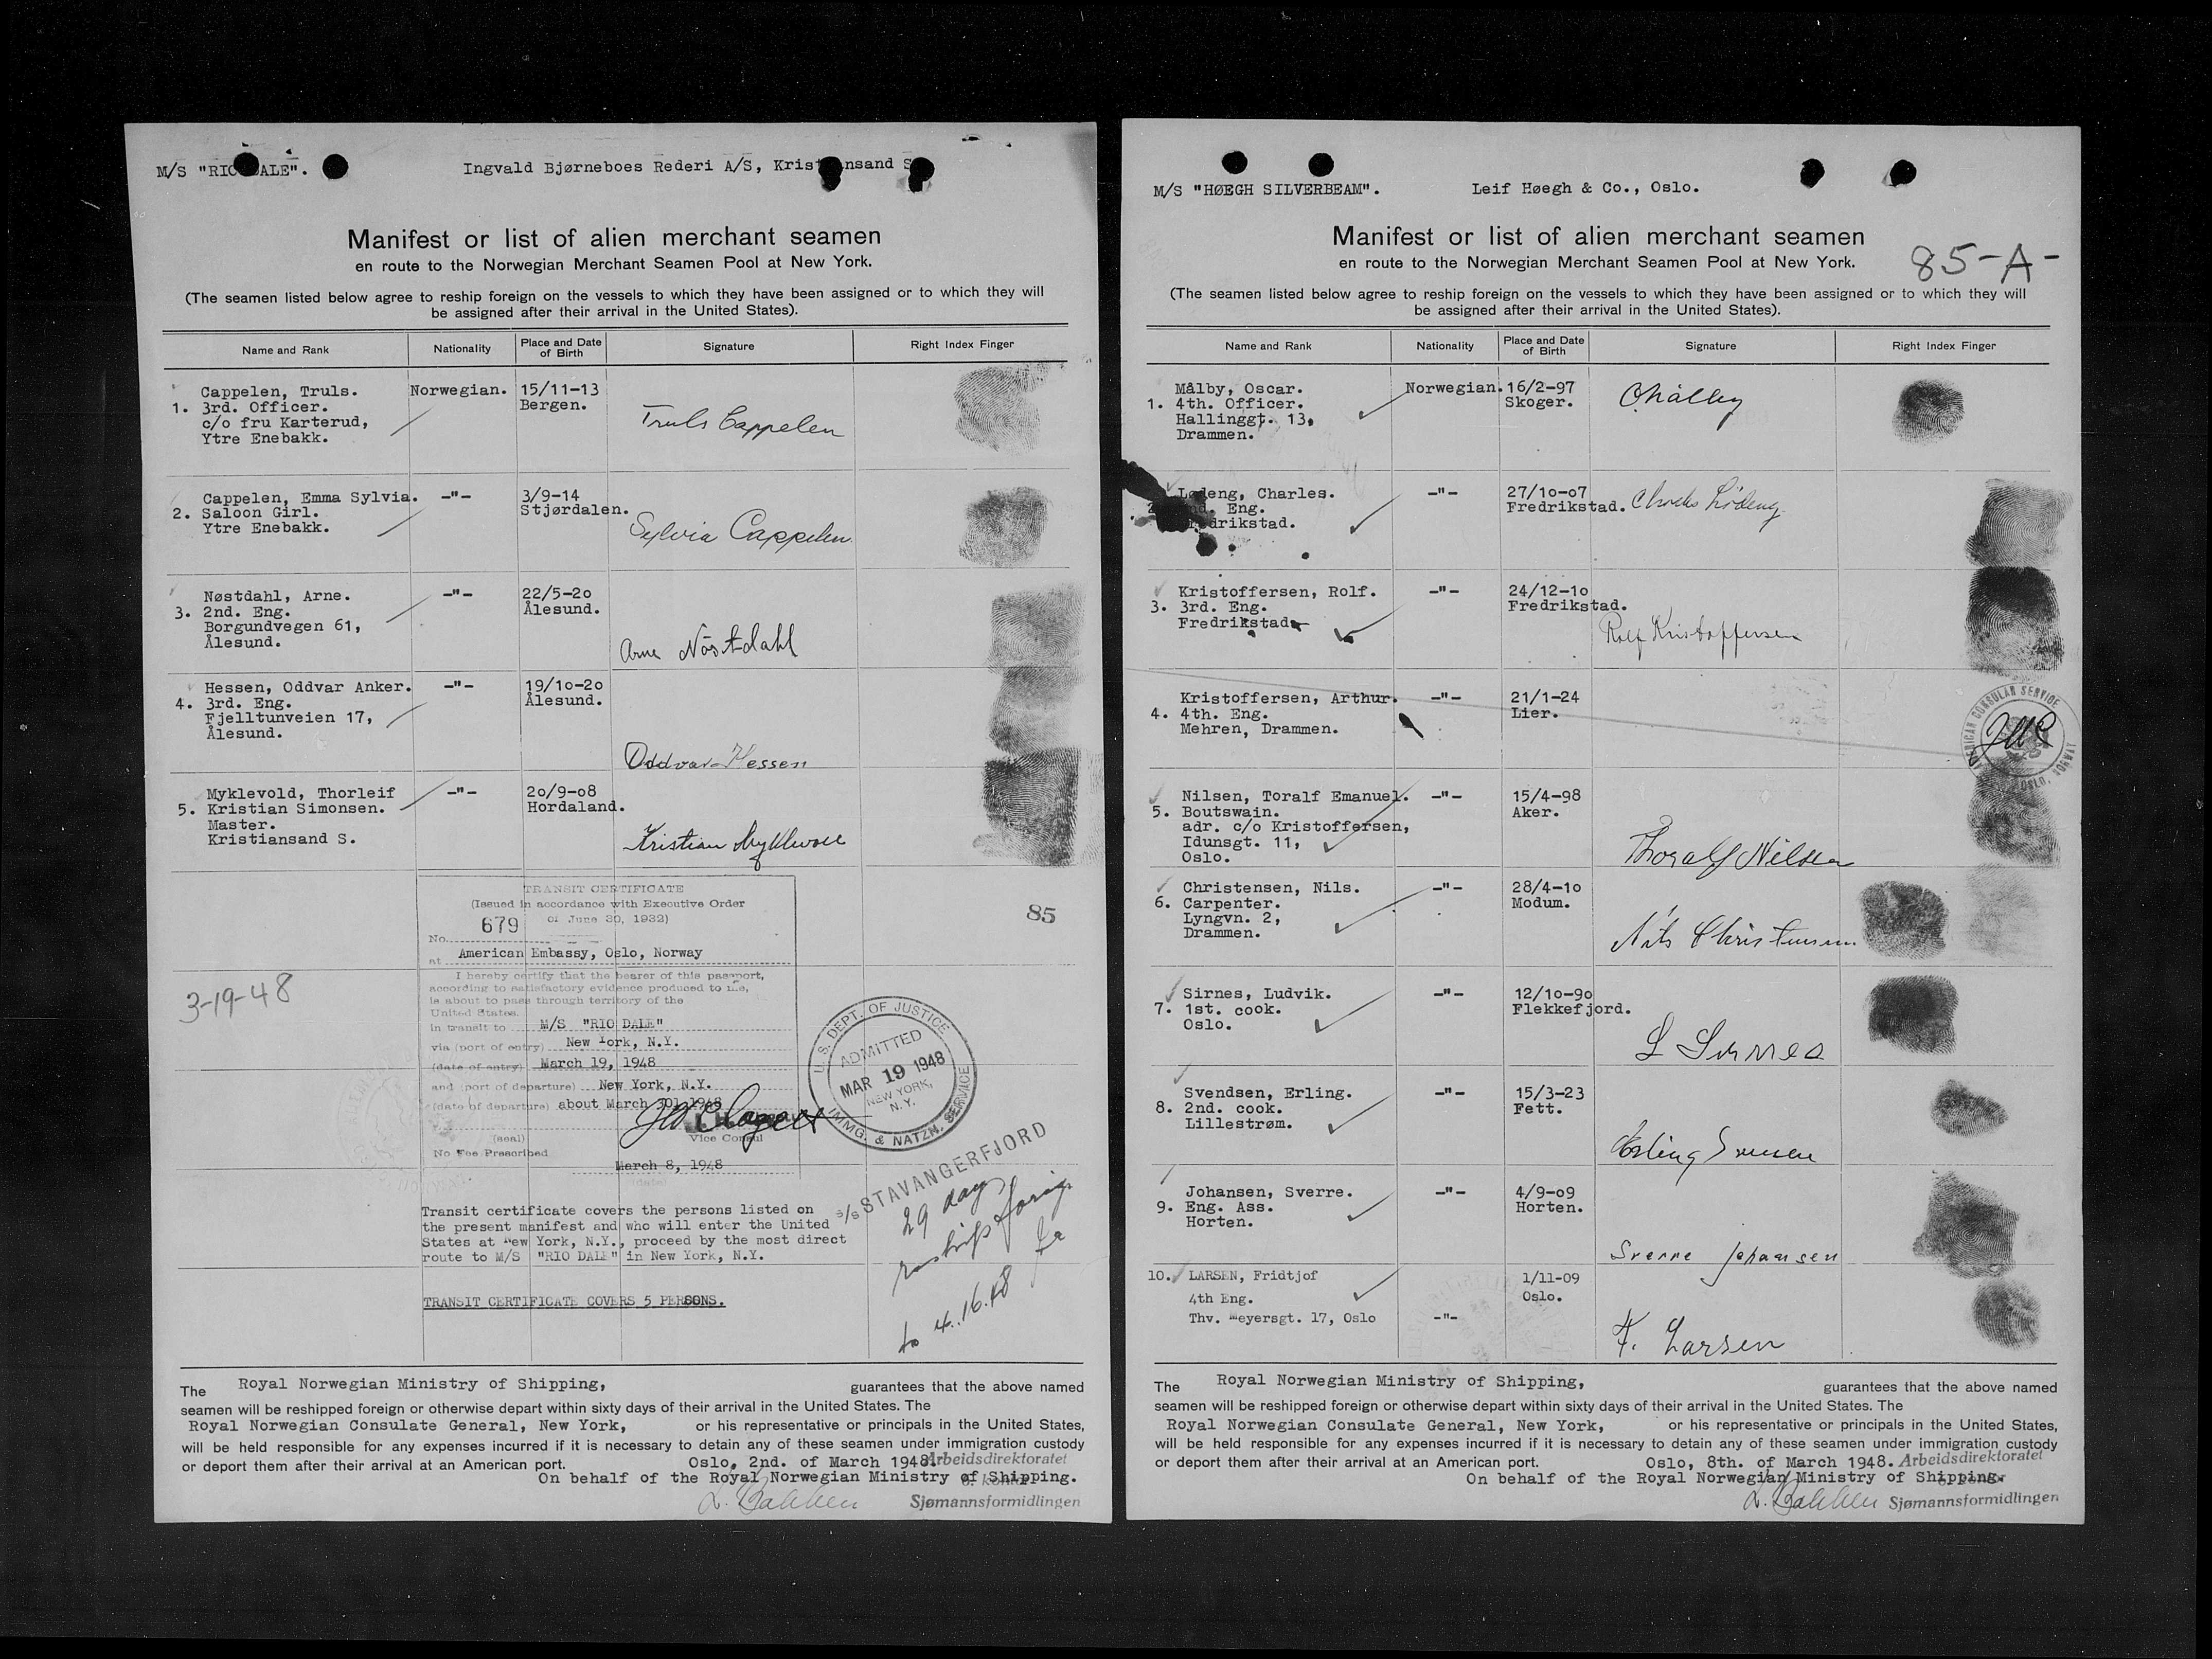 M/S "RIO DALE". Ingvald Bjørneboes Rederi A/S, Kristiansand S
Manifest or list of alien merchant seamen
en route to the Norwegian Merchant Seamen Pool at New York.
(The seamen listed below agree to reship foreign on the vessels to which they have been assigned or to which they will
be assigned after their arrival in the United States).
Name and Rank Nationality Place and Date of Birth Signature Right Index Finger
Cappelen, Truls. Norwegian. 15/11-13
1. 3rd. Officer. Bergen.
c/o fru Karterud, Truls Cappelen
Ytre Enebakk.
Cappelen, Emma Sylvia. -"- 3/9-14
2. Saloon Girl. Stjørdalen.
Ytre Enebakk. Sylvia Cappelen
Nøstdahl, Arne. -"- 22/5-20
3. 2nd. Eng. Ålesund.
Borgundvegen 61,
Ålesund. Arne Nöstdahl
Hessen, Oddvar Anker. -"- 19/10-20
4. 3rd. Eng. Ålesund.
Fjelltunveien 17,
Ålesund.
Oddvar Hessen
Myklevold, Thorleif -"- 20/9-08
5. Kristian Simonsen. Hordaland.
Master.
Kristiansand S. Kristian Myklevold
TRANSIT CERTIFICATE
(Issued in accordance with Executive Order
of June 30, 1932)
85
No. 679
at American Embassy, Oslo, Norway
I hereby certify that the bearer of this passport,
according to satisfactory evidence produced to me,
is about to pass through territory of the
United States.
3-19-48
in transit to M/S "RIO DALE"
via (port of entry) New York, N.Y.
(date of entry) March 19, 1948
and (port of departure) New York, N.Y.
(date of departure) about March 30, 1948
(seal) Vice Consul
No Fee Prescribed
March 8, 1948
(date)
U. S. DEPT. OF JUSTICE
ADMITTED
MAR 19 1948
NEW YORK,
N.Y.
IMMG. & NATZN. SERVICE
s/s STAVANGERFJORD
29 days
reship foreign
to 4.16.48
Transit certificate covers the persons listed on
the present manifest and who will enter the United
States at New York, N.Y., proceed by the most direct
route to M/S "RIO DALE" in New York, N.Y.
TRANSIT CERTIFICATE COVERS 5 PERSONS.
The Royal Norwegian Ministry of Shipping, guarantees that the above named
seamen will be reshipped foreign or otherwise depart within sixty days of their arrival in the United States. The
Royal Norwegian Consulate General, New York, or his representative or principals in the United States,
will be held responsible for any expenses incurred if it is necessary to detain any of these seamen under immigration custody
or deport them after their arrival at an American port. Oslo, 2nd. of March 1948. Arbeidsdirektoratet
On behalf of the Royal Norwegian Ministry of Shipping.
L. Bakken Sjømannsformidlingen
M/S "HØEGH SILVERBEAM". Leif Høegh & Co., Oslo.
Manifest or list of alien merchant seamen
85-A-
en route to the Norwegian Merchant Seamen Pool at New York.
(The seamen listed below agree to reship foreign on the vessels to which they have been assigned or to which they will
be assigned after their arrival in the United States).
Name and Rank Nationality Place and Date of Birth Signature Right Index Finger
Målby, Oscar. Norwegian. 16/2-97
1. 4th. Officer. Skoger. O Målby
Hallinggt. 13,
Drammen.
Lødeng, Charles. -"- 27/10-07
2. 2nd. Eng. Fredrikstad. Charles Lödeng
Fredrikstad.
Kristoffersen, Rolf. -"- 24/12-10
3. 3rd. Eng. Fredrikstad.
Fredrikstad. Rolf Kristoffersen
Kristoffersen, Arthur. -"- 21/1-24
4. 4th. Eng. Lier.
Mehren, Drammen.
AMERICAN CONSULAR SERVICE
OSLO,
Nilsen, Toralf Emanuel. -"- 15/4-98
5. Boutswain. Aker.
adr. c/o Kristoffersen,
Idunsgt. 11,
Oslo. Thoralf Nilsen
Christensen, Nils. -"- 28/4-10
6. Carpenter. Modum.
Lyngvn. 2,
Drammen. Nils Christensen
Sirnes, Ludvik. -"- 12/10-90
7. 1st. cook. Flekkefjord.
Oslo.
L Sirnes
Svendsen, Erling. -"- 15/3-23
8. 2nd. cook. Fett.
Lillestrøm.
Erling Svensen
Johansen, Sverre. -"- 4/9-09
9. Eng. Ass. Horten.
Horten.
Sverre Johansen
10. LARSEN, Fridtjof 1/11-09
4th Eng. Oslo.
Thv. Meyersgt. 17, Oslo -"-
F. Larsen
The Royal Norwegian Ministry of Shipping, guarantees that the above named
seamen will be reshipped foreign or otherwise depart within sixty days of their arrival in the United States. The
Royal Norwegian Consulate General, New York, or his representative or principals in the United States,
will be held responsible for any expenses incurred if it is necessary to detain any of these seamen under immigration custody
or deport them after their arrival at an American port. Oslo, 8th. of March 1948. Arbeidsdirektoratet
On behalf of the Royal Norwegian Ministry of Shipping.
L. Bakken Sjømannsformidlingen